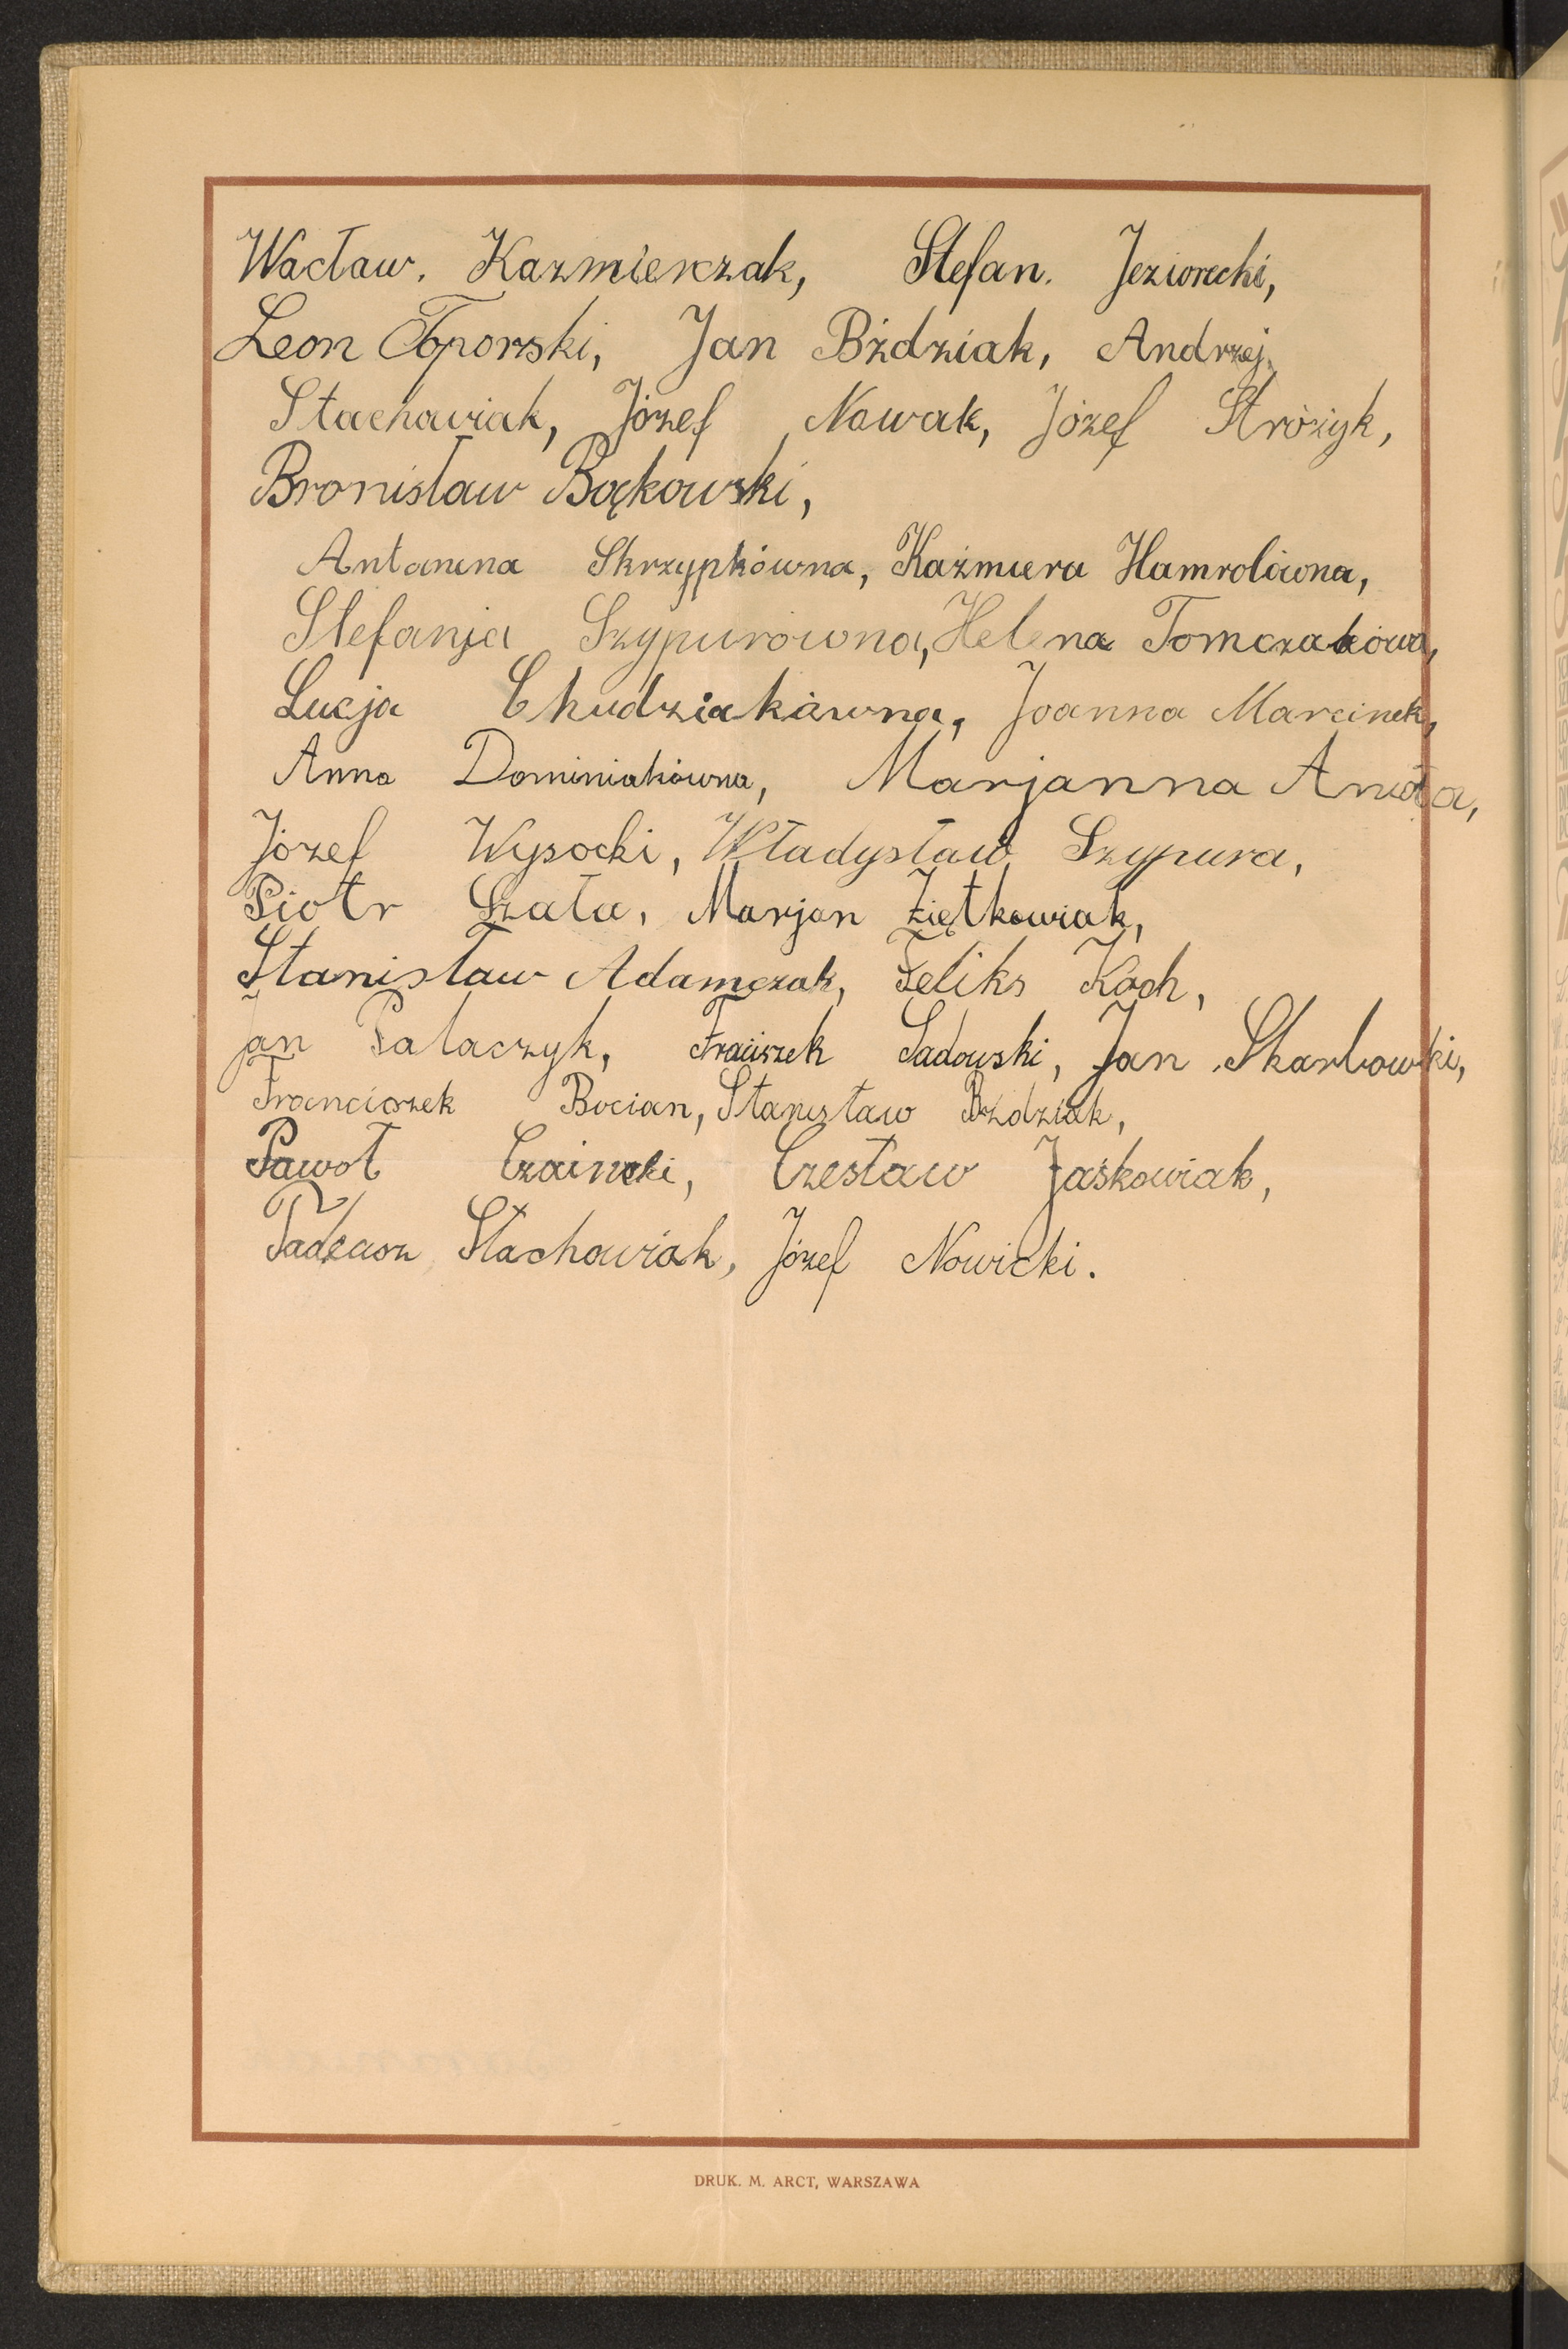 Wacław. Kazmierczak, Stefan. Jeziorecki,
Leon Toporski, Jan Bździak, Andrzej
Stachowiak, Józef Nowak, Józef Stróżyk,
Bronisław Bąkowski,
Antonina Skrzypkówna, Kaźmiera Hamrolówna,
Stefanja Szypurówna, Helena Tomczakówa,
Łucja Chudziakówna, Joanna Marcinek,
Anna Dominiakówna, Marjanna Anioła,
Józef Wysocki, Władysław Szypura,
Piotr Szała, Marjan Ziętkowiak,
Stanisław Adamczak, Feliks Koch,
Jan Palaczyk, Fraciszek Sadowski, Jan Skarbowki,
Franciszek Bocian, Stanisław Bździak,
Paweł Czesław Jaśkowiak,
Tadeusz Stachowiak, Józef Nowicki.
DRUK. M. ARCT, WARSZAWA